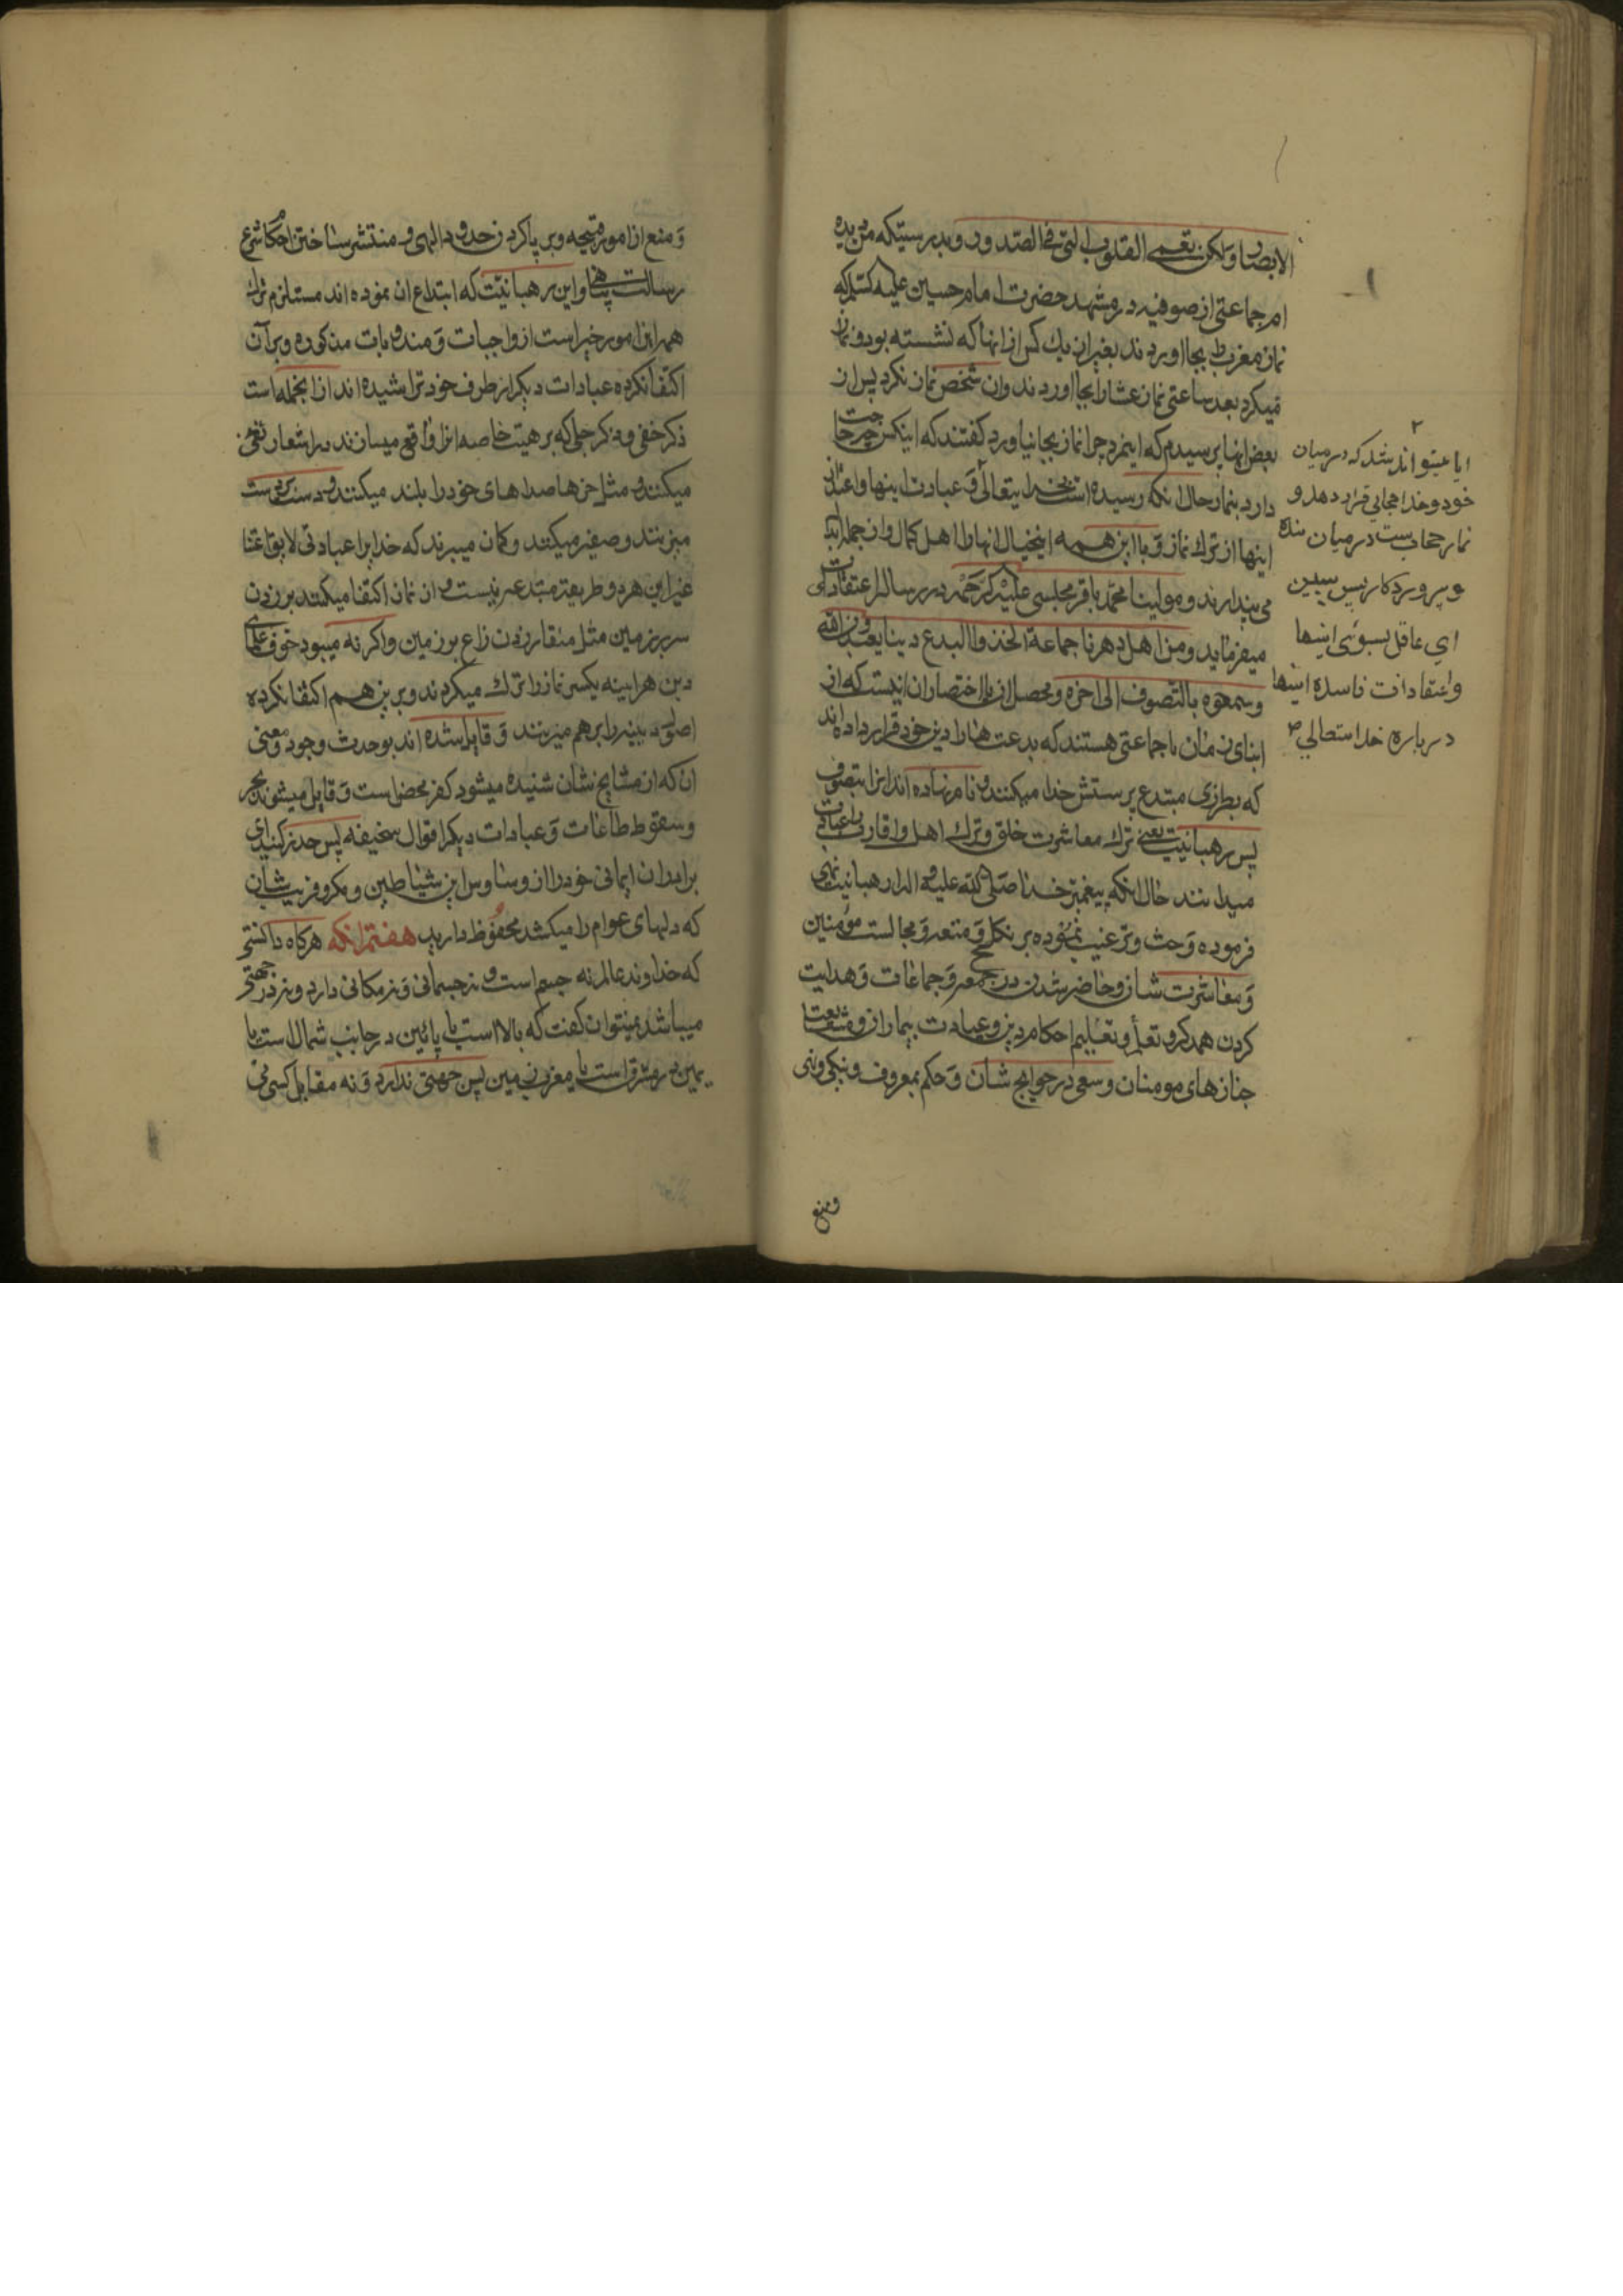 الابصار ولکن تعمی القلوب التی فی الصدور و بدرستیکه من دیده
ام جماعتی از صوفیه در مشهد حضرت امام حسین علیه السلام که
نماز مغرب بجا اوردند بغیر از یك کس از انها که نشسته بود و نماز
نمیکرد بعد ساعتی نماز عشا را بجا اوردند و ان شخص نماز نکرد پس از
بعض انها پرسیدم که اینمرد چرا نماز بجا نیاورد کفتند که اینکس چه حاجت
دارد بنماز حال انکه رسیده است بخدایتعالی و عبادت اینها و اعتذار
اینها از ترك نماز و با این همه اینخیال انها را اهل کمال و از جمله ابدال
می پندارند و مولینا محمد باقر مجلسی علیه الرحمه در رساله اعتقادات
میفرماید و من اهل دهرنا جماعة اتخذوا البدع دینا یعبدون الله
و سموه بالتصوف الی اخره و محصل ان با اختصار ان اینست که از
ابنای زمان ما جماعتی هستند که بدعت ها را دین خود قرار داده اند
که بطرزی مبتدع پرستش خدا میکنند و نام نهاده اند انرا بتصوف
پس رهبانیت یعنی ترك معاشرت خلق و ترك اهل و اقارب را عبادت
میدانند حال انکه پیغمبر خدا صلی الله علیه و اله از رهبانیت نهی
فرموده و حث و ترغیب نموده بر نکاح و متعه و مجالست مؤمنین
و معاشرت شان و حاضر شدن در جمعه و جماعات و هدایت
کردن همدکر و تعلم و تعلیم احکام دین و عیادت بیماران و مشایعت
جنازهای مومنان و سعی در حوایج شان و حکم بمعروف و نیکی و نهی
ومنع
۲
ایا میتواند شد که درمیان
خود و خدا حجابی قرار دهد و
نماز حجاب ست درمیان بنده
و پروردکار پس ببین
ای عاقل بسوئی اینها
و اعتقادات فاسده اینها
درباره خدا
و منع از امور قبیحه و بر پا کردن حدود الهی و منتشر ساختن احکام شرع
رسالت پناهی و این رهبانیت که ابتداع ان نموده اند مستلزم ترك
همه این امور خیر است از واجبات و مندوبات مذکوره و بر آن
اکتفا نکرده عبادات دیکر از طرف خود تراشیده اند از انجمله است
ذکر خفی و ذکر جلی که بر هیئت خاصه انرا واقع میسازند در اشعار تغنی
میکنند و مثل خرها صداهای خود را بلند میکنند و دست بر دست
میزنند و صفیر میکنند و کمان میبرند که خدا را عبادتی لایق اعتنا
غیر این هر دو طریقه مبتدعه نیست و از نماز اکتفا میکنند بر زدن
سر بر زمین مثل منقار زدن زاغ بر زمین و اکر نه میبود خوف علمای
دین هر اینه یکسر نماز را ترك میکردند و بر این هم اکتفا نکرده
اصول دینیه را بر هم میزنند و قایل شده اند بوحدت وجود و معنی
ان که از مشایخ شان شنیده میشود کفر محض است و قایل میشوند بجبر
و سقوط طاعات و عبادات دیکر اقوال سخیفه پس حذر کنید ای
برادران ایمانی خود را از وساوس این شیاطین و مکر و فریب شان
که دلهای عوام را میکشد محفوظ دارید هفتم انکه هرکاه دانستی
که خداوند عالم نه جسم است و نه جسمانی و نه مکانی دارد و نه در جهتی
میباشد نمیتوان کفت که بالا است یا پائین در جانب شمال است یا
یمین در مشرق است یا مغرب زمین پس جهتی ندارد و نه مقابل کسی می